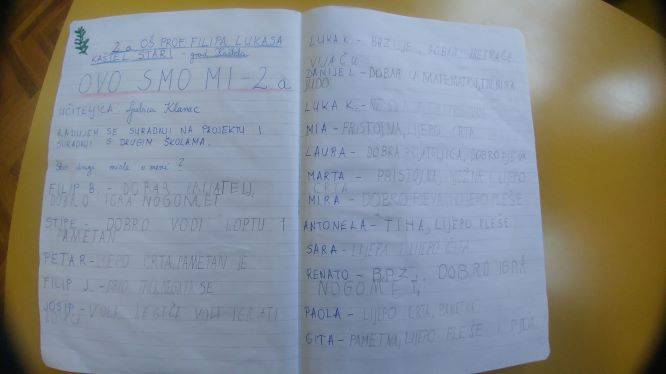 2.a OŠ PROF. FILIPA LUKASA
KAŠTEL STARI - grad Kaštela
OVO SMO MI - 2.a
UČITELJICA Ljubica Klanac
RADUJEM SE SURADNJI NA PROJEKTU I
SURADNJI S DRUGIM ŠKOLAMA.
Što drugi misle o meni?
FILIP B. - DOBAR PRIJATELJ,
DOBRO IGRA NOGOMET
STIPE - DOBRO VODI LOPTU I
PAMETAN
PETAR - LIJEPO CRTA, PAMETAN JE
FILIP J. -
JOSIP - VOLI LEGIĆE VOLI IGRATI
LUKA K. - BRZ JE, DOBRO PRESKAČE
VIJAČU
DANIJEL - DOBAR U MATEMATICI, TRENIRA
JUDO
LUKA K. -
MIA - PRISTOJNA, LIJEPO CRTA
LAURA - DOBRA PRIJATELJICA, DOBRO PJEVA
MARTA - PRISTOJNA, NJEŽNA I LIJEPO
CRTA
MIRA - DOBRO PJEVA, LIJEPO PLEŠE
ANTONELA - TIHA, LIJEPO PLEŠE
SARA - LIJEPA I LIJEPO ČITA
RENATO - BRZ, DOBRO IGRA
NOGOMET
PAOLA - LIJEPO CRTA, PAMETNA
GITA - PAMETNA, LIJEPO PLEŠE I